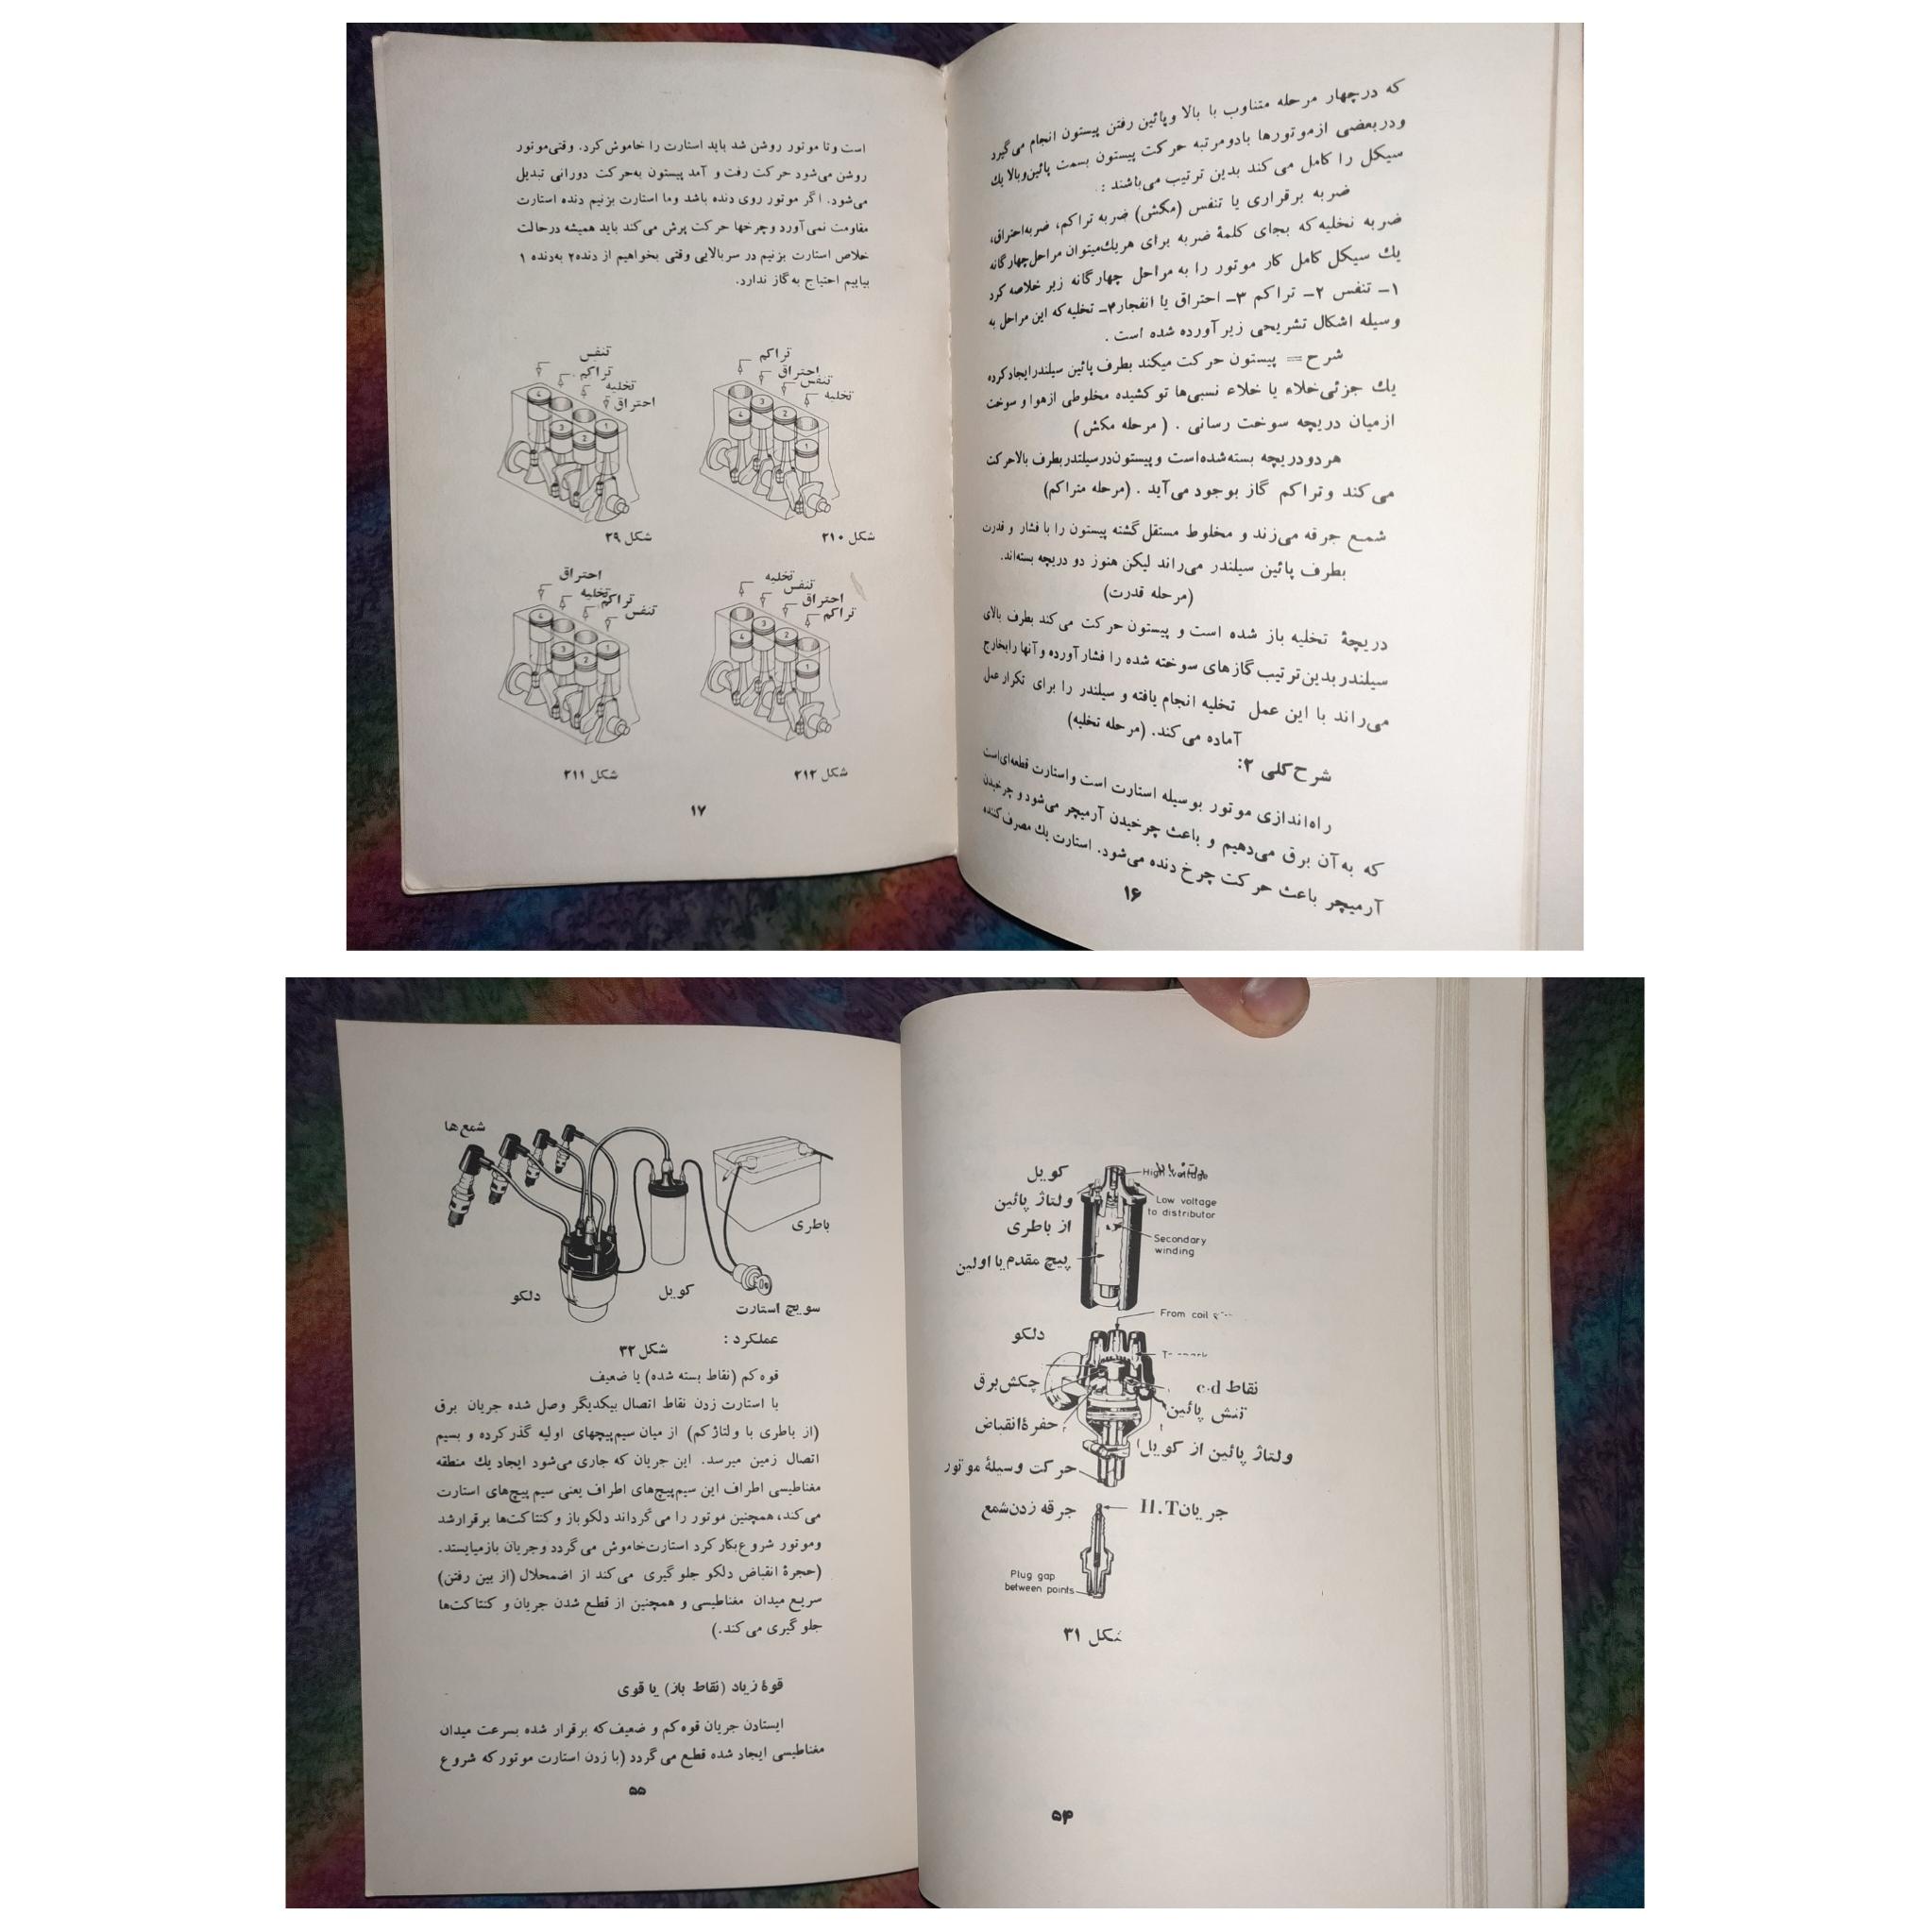 که درچهار مرحله متناوب با بالا وپائین رفتن پیستون انجام می‌گیرد
ودربعضی ازموتورها بادومرتبه حرکت پیستون بسمت پائین‌وبالا یك
سیکل را کامل می‌کند بدین ترتیب می‌باشند :
ضربه برقراری یا تنفس (مکش) ضربه تراکم، ضربه‌احتراق،
ضربه تخلیه‌که بجای کلمهٔ ضربه برای هریك‌میتوان مراحل‌چهارگانه
یك سیکل کامل کار موتور را به مراحل چهارگانه زیر خلاصه کرد
۱ـ تنفس ۲ـ تراکم ۳ـ احتراق یا انفجار۴ـ تخلیه‌که این مراحل به
وسیله اشکال تشریحی زیرآورده شده است .
شرح= پیستون حرکت میکند بطرف پائین سیلندرایجادکرده
یك جزئی‌خلاء یا خلاء نسبی‌ها توکشیده مخلوطی ازهوا و سوخت
ازمیان دریچه سوخت رسانی . (مرحله مکش)
هردودریچه بسته‌شده‌است وپیستون‌درسیلندر‌بطرف بالاحرکت
می‌کند وتراکم گاز بوجود می‌آید . (مرحله متراکم)
شمع جرقه می‌زند و مخلوط مستقل‌گشته پیستون را با فشار و قدرت
بطرف پائین سیلندر می‌راند لیکن هنوز دو دریچه بسته‌اند.
(مرحله قدرت)
دریچهٔ تخلیه باز شده است و پیستون حرکت می‌کند بطرف بالای
سیلندر‌بدین‌ترتیب گازهای سوخته شده را فشارآورده وآنها رابخارج
می‌راند با این عمل تخلیه انجام یافته و سیلندر را برای تکرارعمل
آماده می‌کند. (مرحله تخلیه)
شرح‌کلی ۲:
راه‌اندازی موتور بوسیله استارت است واستارت قطعه‌ای‌است
که به‌آن برق می‌دهیم و باعث چرخیدن آرمیچر می‌شود وچرخیدن
آرمیچر باعث حرکت چرخ دنده می‌شود. استارت یك مصرف‌کننده
۱۶
است وتا موتور روشن شد باید استارت را خاموش‌کرد. وقتی‌موتور
روشن می‌شود حرکت رفت و آمد پیستون به‌حرکت دورانی تبدیل
می‌شود. اگر موتور روی دنده باشد وما استارت بزنیم دنده استارت
مقاومت نمی‌آورد وچرخها حرکت پرش می‌کند باید همیشه درحالت
خلاص استارت بزنیم در سربالایی وقتی بخواهیم از دنده۲ به‌دنده ۱
بیاییم احتیاج به‌گاز ندارد.
تراکم
احتراق
تنفس
تخلیه
4
3
2
1
شکل ۲۱۰
تنفس
تراکم
تخلیه
احتراق
4
3
2
1
شکل ۲۹
تخلیه
تنفس
احتراق
تراکم
4
3
2
1
شکل ۲۱۲
احتراق
تخلیه
تراکم
تنفس
4
3
2
1
شکل ۲۱۱
۱۷
کویل
High voltage
ولتاژ پائین
Low voltage
to distributor
از باطری
Secondary
winding
پیچ مقدم‌یا اولین
From coil
دلکو
چکش‌برق
نقاط c.d
تنش پائین
حفرهٔ‌انقباض
ولتاژ پائین از کویل
حرکت وسیلهٔ موتور
جرقه زدن‌شمع
جریانH.T
Plug gap
between points
شکل ۳۱
۵۴
شمع‌ها
باطری
دلکو
کویل
سویچ استارت
عملکرد :
شکل ۳۲
قوه‌کم (نقاط بسته شده) یا ضعیف
با استارت زدن نقاط اتصال بیکدیگر وصل شده جریان برق
(از باطری با ولتاژکم) از میان سیم‌پیچهای اولیه گذرکرده و بسیم
اتصال زمین میرسد. این جریان که جاری می‌شود ایجاد یك منطقه
مغناطیسی اطراف این سیم‌پیچ‌های اطراف یعنی سیم پیچ‌های استارت
می‌کند، همچنین موتور را می‌گرداند دلکوباز و کنتاکت‌ها برقرارشد
وموتور شروع‌بکار کرد استارت‌خاموش می‌گردد وجریان بازمیایستد.
(حجرهٔ انقباض دلکو جلوگیری می‌کند از اضمحلال (از بین رفتن)
سریع میدان مغناطیسی و همچنین از قطع شدن جریان و کنتاکت‌ها
جلوگیری می‌کند.)
قوهٔ زیاد (نقاط باز) یا قوی
ایستادن جریان قوه‌کم و ضعیف‌که برقرار شده بسرعت میدان
مغناطیسی ایجاد شده قطع می‌گردد (با زدن استارت موتورکه شروع
۵۵